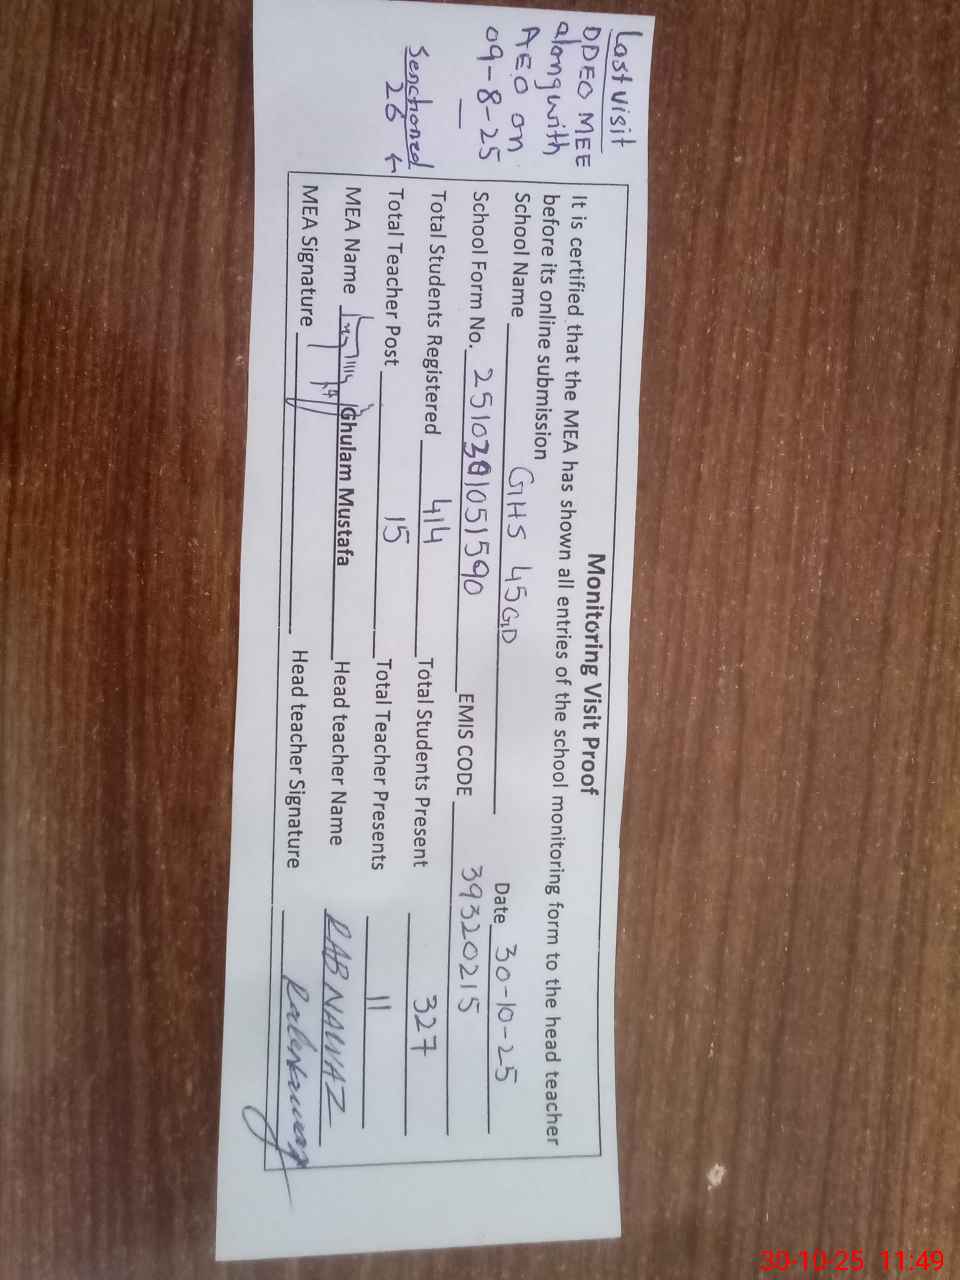 Last visit
DDEO MEE
alongwith
AEO on
09-8-25
Senchoned
26 ←
Monitoring Visit Proof
It is certified that the MEA has shown all entries of the school monitoring form to the head teacher
before its online submission
School Name GHS 45GD Date 30-10-25
School Form No. 2510301051590 EMIS CODE 39320215
Total Students Registered 414 Total Students Present 327
Total Teacher Post 15 Total Teacher Presents 11
MEA Name Ghulam Mustafa Head teacher Name RAB NAWAZ
MEA Signature Head teacher Signature
30-10-25 11:49